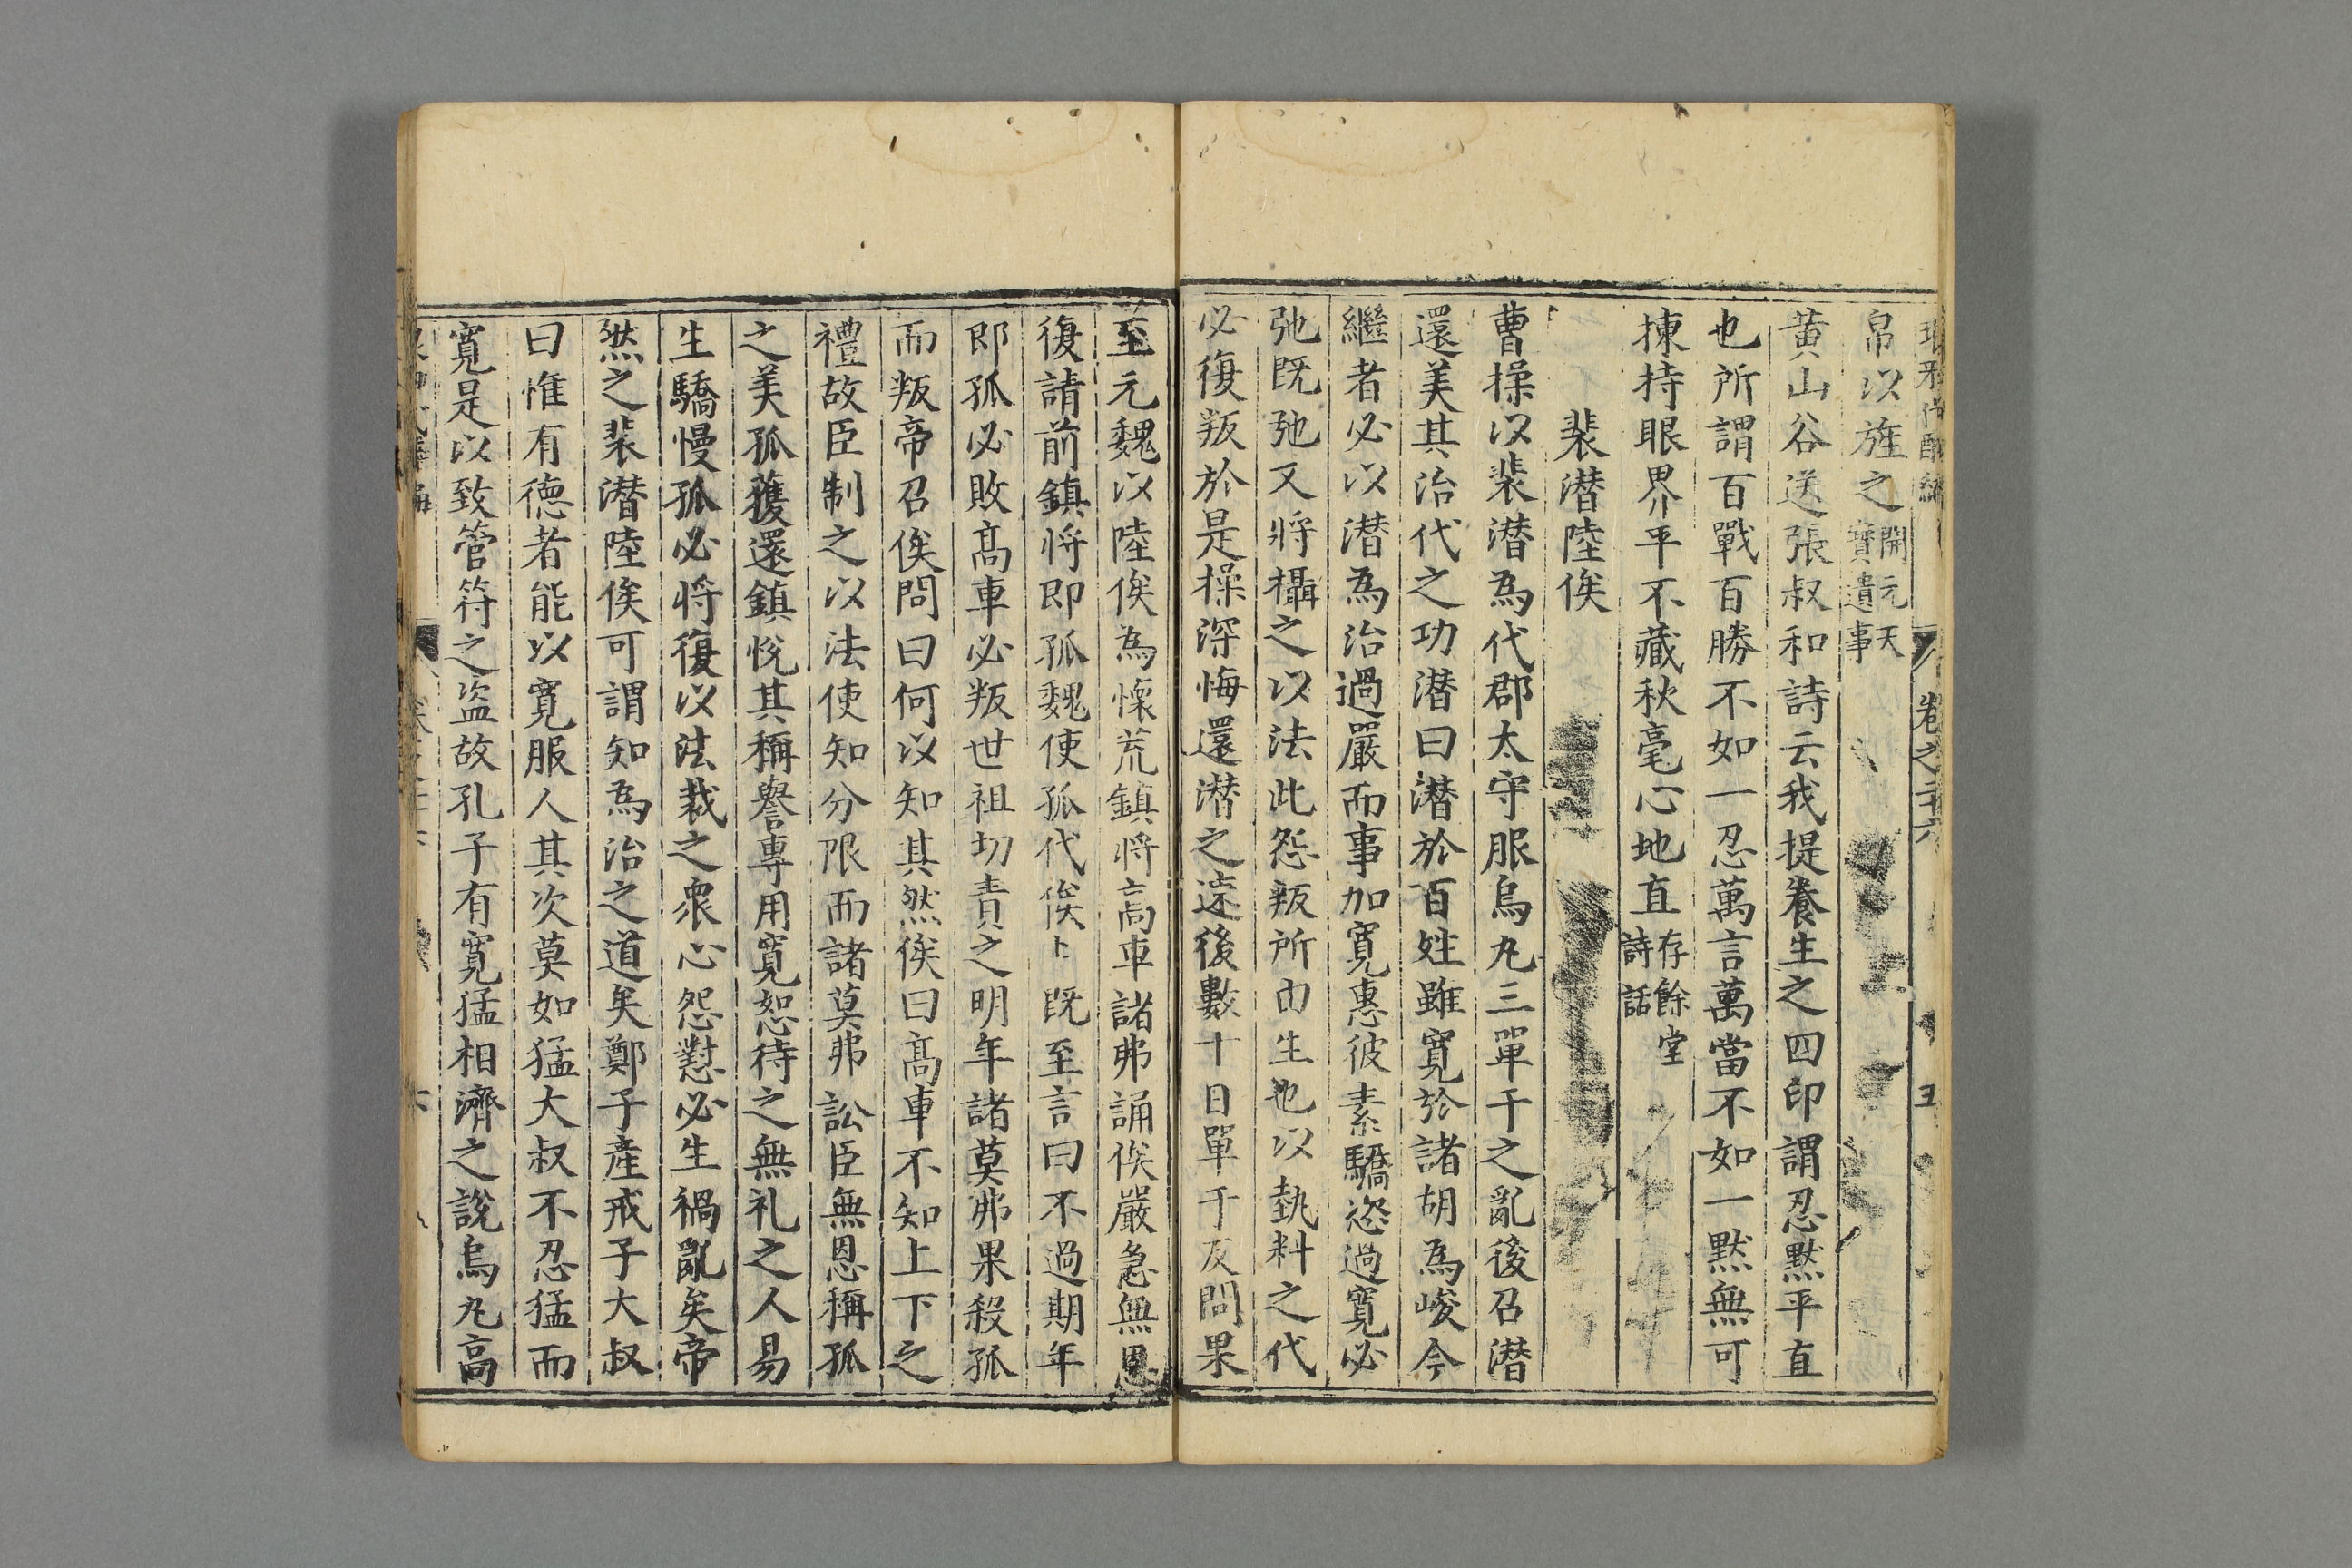 卷之二十六 五
帛以旌之開元天寶遺事
黄山谷送張叔和詩云我提養生之四印謂忍黙平直
也所謂百戰百勝不如一忍萬言萬當不如一黙無可
揀持眼界平不藏秋毫心地直存餘堂詩話
裴潜陸俟
曹操以裴潜為代郡太守服烏丸三單于之亂後召潜
還美其治代之功潜曰潜於百姓雖寛於諸胡為峻今
繼者必以潜為治過嚴而事加寛惠彼素驕恣過寛必
弛既弛又將攝之以法此怨叛所由生也以埶料之代
必復叛於是操深悔還潜之速後數十日單于反問果
至元魏以陸俟為懷荒鎮將高車諸弗誦俟嚴急無恩
復請前鎮將郎孤魏使孤代俟既至言曰不過期年
郎孤必敗髙車必叛世祖切責之明年諸莫弗果殺孤
而叛帝召俟問曰何以知其然俟曰髙車不知上下之
禮故臣制之以法使知分限而諸莫弗訟臣無恩稱孤
之美孤獲還鎮悅其稱譽專用寛恕待之無礼之人易
生驕慢孤必將復以法裁之衆心怨懟必生禍亂矣帝
然之裴潜陸俟可謂知為治之道矣鄭子產戒子大叔
曰惟有德者能以寛服人其次莫如猛大叔不忍猛而
寛是以致管符之盗故孔子有寛猛相濟之說烏丸高
六